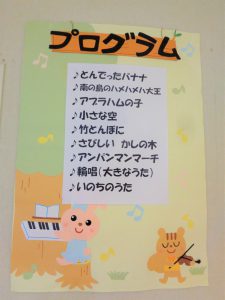 プログラム
♪とんでったバナナ
♪南の島のハメハメハ大王
♪アブラハムの子
♪小さな空
♪竹とんぼに
♪さびしい かしの木
♪アンパンマンマーチ
♪輪唱(大きなうた)
♪いのちのうた